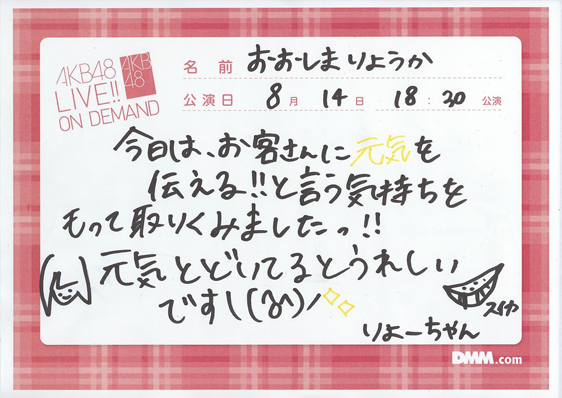 AKB48
LIVE!!
ON DEMAND
AKB
48
名前 おおしまりょうか
公演日 8月 14日 18:30 公演
今日は、お客さんに元気を
伝える!!と言う気持ちを
もって取りくみましたっ!!
元気とどいてるとうれしい
ですし(みハ)ノ
スイカ
りょーちゃん
DMM.com